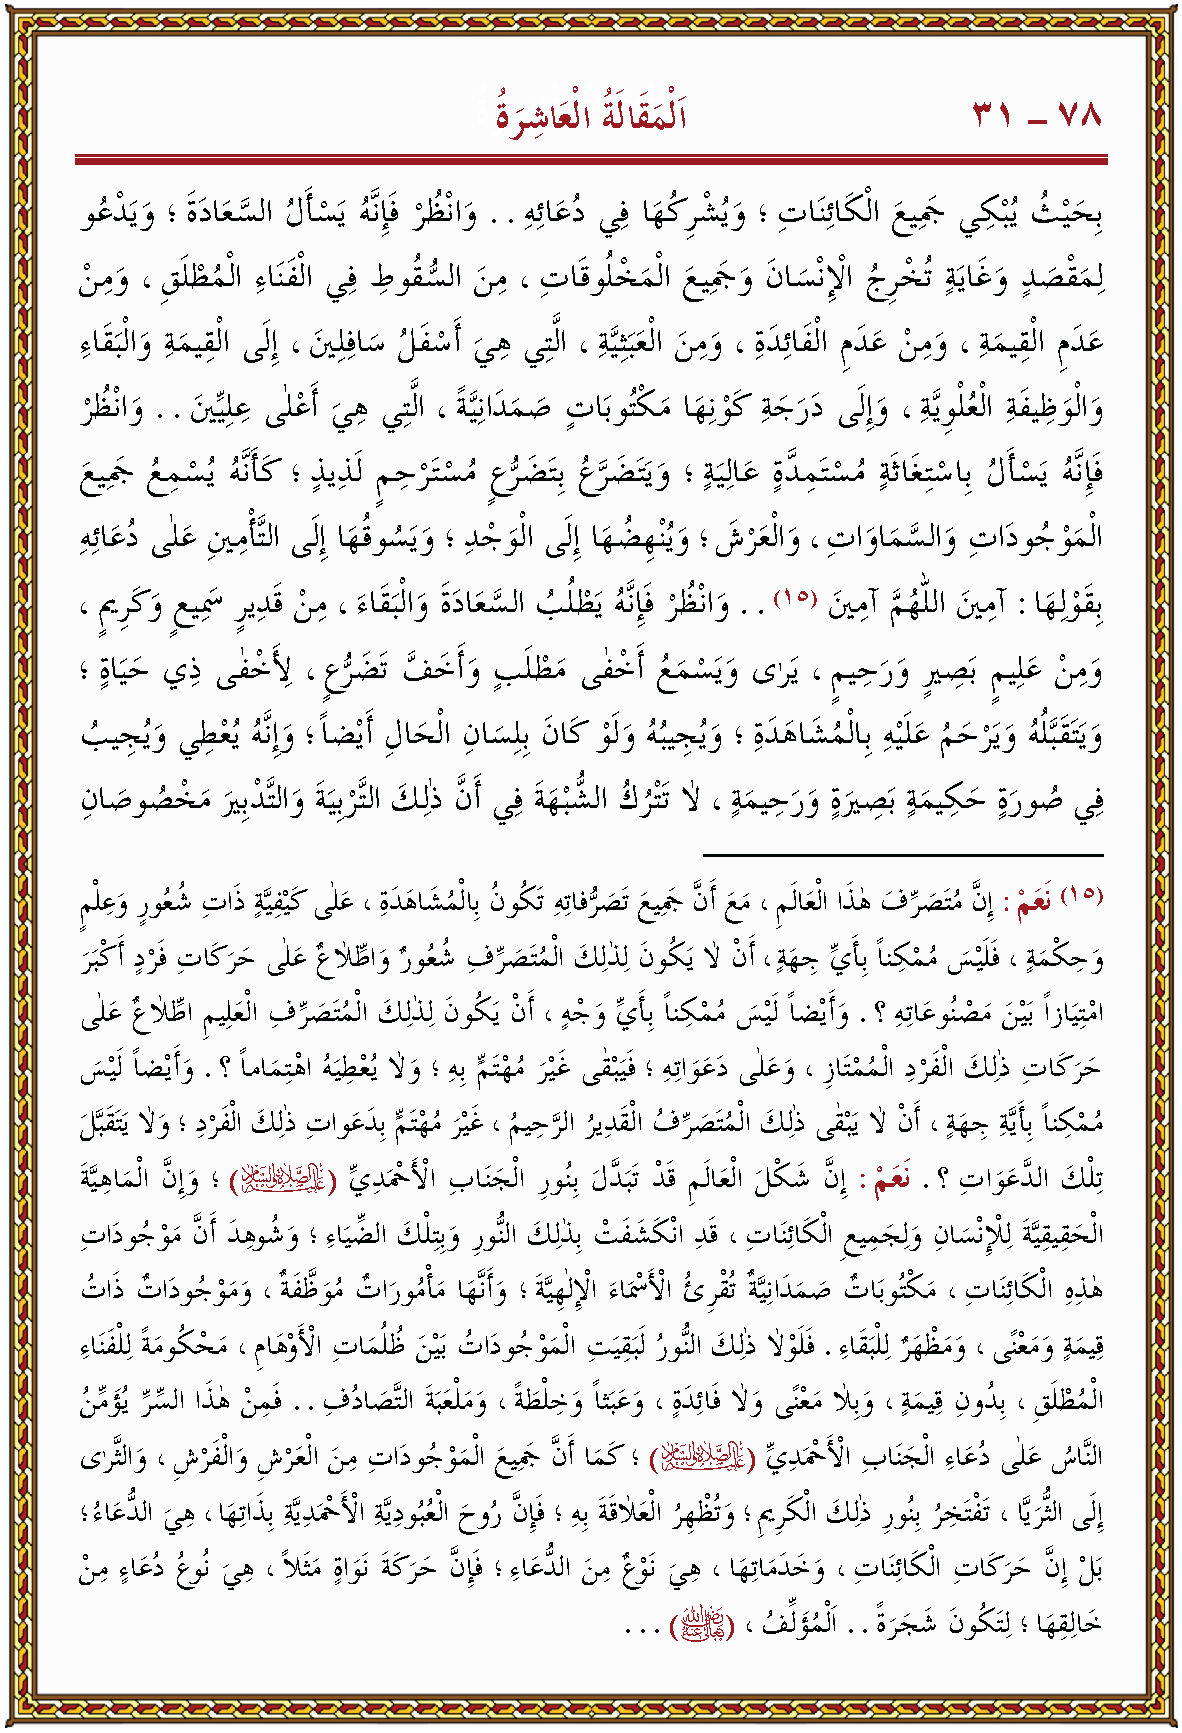 ٧٨ – ٣١ اَلْمَقَالَةُ الْعَاشِرَةُ
بِحَيْثُ يُبْكِي جَمِيعَ الْكَائِنَاتِ ؛ وَيُشْرِكُهَا فِي دُعَائِهِ . . وَانْظُرْ فَإِنَّهُ يَسْأَلُ السَّعَادَةَ ؛ وَيَدْعُو
لِمَقْصَدٍ وَغَايَةٍ تُخْرِجُ الْإِنْسَانَ وَجَمِيعَ الْمَخْلُوقَاتِ ، مِنَ السُّقُوطِ فِي الْفَنَاءِ الْمُطْلَقِ ، وَمِنْ
عَدَمِ الْقِيمَةِ ، وَمِنْ عَدَمِ الْفَائِدَةِ ، وَمِنَ الْعَبَثِيَّةِ ، الَّتِي هِيَ أَسْفَلُ سَافِلِينَ ، إِلَى الْقِيمَةِ وَالْبَقَاءِ
وَالْوَظِيفَةِ الْعُلْوِيَّةِ ، وَإِلَى دَرَجَةِ كَوْنِهَا مَكْتُوبَاتٍ صَمَدَانِيَّةً ، الَّتِي هِيَ أَعْلٰى عِلِيِّينَ . . وَانْظُرْ
فَإِنَّهُ يَسْأَلُ بِاسْتِغَاثَةٍ مُسْتَمِدَّةٍ عَالِيَةٍ ؛ وَيَتَضَرَّعُ بِتَضَرُّعٍ مُسْتَرْحِمٍ لَذِيذٍ ؛ كَأَنَّهُ يُسْمِعُ جَمِيعَ
الْمَوْجُودَاتِ وَالسَّمَاوَاتِ ، وَالْعَرْشَ ؛ وَيُنْهِضُهَا إِلَى الْوَجْدِ ؛ وَيَسُوقُهَا إِلَى التَّأْمِينِ عَلٰى دُعَائِهِ
بِقَوْلِهَا : آمِينَ اللّٰهُمَّ آمِينَ (١٥) . . وَانْظُرْ فَإِنَّهُ يَطْلُبُ السَّعَادَةَ وَالْبَقَاءَ ، مِنْ قَدِيرٍ سَمِيعٍ وَكَرِيمٍ ،
وَمِنْ عَلِيمٍ بَصِيرٍ وَرَحِيمٍ ، يَرٰى وَيَسْمَعُ أَخْفٰى مَطْلَبٍ وَأَخَفَّ تَضَرُّعٍ ، لِأَخْفٰى ذِي حَيَاةٍ ؛
وَيَتَقَبَّلُهُ وَيَرْحَمُ عَلَيْهِ بِالْمُشَاهَدَةِ ؛ وَيُجِيبُهُ وَلَوْ كَانَ بِلِسَانِ الْحَالِ أَيْضاً ؛ وَإِنَّهُ يُعْطِي وَيُجِيبُ
فِي صُورَةٍ حَكِيمَةٍ بَصِيرَةٍ وَرَحِيمَةٍ ، لَا تَتْرُكُ الشُّبْهَةَ فِي أَنَّ ذٰلِكَ التَّرْبِيَةَ وَالتَّدْبِيرَ مَخْصُوصَانِ
(١٥) نَعَمْ : إِنَّ مُتَصَرِّفَ هٰذَا الْعَالَمِ ، مَعَ أَنَّ جَمِيعَ تَصَرُّفَاتِهِ تَكُونُ بِالْمُشَاهَدَةِ ، عَلٰى كَيْفِيَّةٍ ذَاتِ شُعُورٍ وَعِلْمٍ
وَحِكْمَةٍ ، فَلَيْسَ مُمْكِناً بِأَيِّ جِهَةٍ ، أَنْ لَا يَكُونَ لِذٰلِكَ الْمُتَصَرِّفِ شُعُورٌ وَاطِّلَاعٌ عَلٰى حَرَكَاتِ فَرْدٍ أَكْبَرَ
امْتِيَازاً بَيْنَ مَصْنُوعَاتِهِ ؟ . وَأَيْضاً لَيْسَ مُمْكِناً بِأَيِّ وَجْهٍ ، أَنْ يَكُونَ لِذٰلِكَ الْمُتَصَرِّفِ الْعَلِيمِ اطِّلَاعٌ عَلٰى
حَرَكَاتِ ذٰلِكَ الْفَرْدِ الْمُمْتَازِ ، وَعَلٰى دَعَوَاتِهِ ؛ فَيَبْقٰى غَيْرَ مُهْتَمٍّ بِهِ ؛ وَلَا يُعْطِيَهُ اهْتِمَاماً ؟ . وَأَيْضاً لَيْسَ
مُمْكِناً بِأَيَّةِ جِهَةٍ ، أَنْ لَا يَبْقٰى ذٰلِكَ الْمُتَصَرِّفُ الْقَدِيرُ الرَّحِيمُ ، غَيْرَ مُهْتَمٍّ بِدَعَوَاتِ ذٰلِكَ الْفَرْدِ ؛ وَلَا يَتَقَبَّلَ
تِلْكَ الدَّعَوَاتِ ؟ . نَعَمْ : إِنَّ شَكْلَ الْعَالَمِ قَدْ تَبَدَّلَ بِنُورِ الْجَنَابِ الْأَحْمَدِيِّ (عَلَيْهِ الصَّلَاةُ وَالسَّلَامُ) ؛ وَإِنَّ الْمَاهِيَّةَ
الْحَقِيقِيَّةَ لِلْإِنْسَانِ وَلِجَمِيعِ الْكَائِنَاتِ ، قَدِ انْكَشَفَتْ بِذٰلِكَ النُّورِ وَبِتِلْكَ الضِّيَاءِ ؛ وَشُوهِدَ أَنَّ مَوْجُودَاتِ
هٰذِهِ الْكَائِنَاتِ ، مَكْتُوبَاتٌ صَمَدَانِيَّةٌ تُقْرِئُ الْأَسْمَاءَ الْإِلٰهِيَّةَ ؛ وَأَنَّهَا مَأْمُورَاتٌ مُوَظَّفَةٌ ، وَمَوْجُودَاتٌ ذَاتُ
قِيمَةٍ وَمَعْنًى ، وَمَظْهَرٌ لِلْبَقَاءِ . فَلَوْلَا ذٰلِكَ النُّورُ لَبَقِيَتِ الْمَوْجُودَاتُ بَيْنَ ظُلُمَاتِ الْأَوْهَامِ ، مَحْكُومَةً لِلْفَنَاءِ
الْمُطْلَقِ ، بِدُونِ قِيمَةٍ ، وَبِلَا مَعْنًى وَلَا فَائِدَةٍ ، وَعَبَثاً وَخِلْطَةً ، وَمَلْعَبَةَ التَّصَادُفِ . . فَمِنْ هٰذَا السِّرِّ يُؤَمِّنُ
النَّاسُ عَلٰى دُعَاءِ الْجَنَابِ الْأَحْمَدِيِّ (عَلَيْهِ الصَّلَاةُ وَالسَّلَامُ) ؛ كَمَا أَنَّ جَمِيعَ الْمَوْجُودَاتِ مِنَ الْعَرْشِ وَالْفَرْشِ ، وَالثَّرٰى
إِلَى الثُّرَيَّا ، تَفْتَخِرُ بِنُورِ ذٰلِكَ الْكَرِيمِ ؛ وَتُظْهِرُ الْعَلَاقَةَ بِهِ ؛ فَإِنَّ رُوحَ الْعُبُودِيَّةِ الْأَحْمَدِيَّةِ بِذَاتِهَا ، هِيَ الدُّعَاءُ ؛
بَلْ إِنَّ حَرَكَاتِ الْكَائِنَاتِ ، وَخَدَمَاتِهَا ، هِيَ نَوْعٌ مِنَ الدُّعَاءِ ؛ فَإِنَّ حَرَكَةَ نَوَاةٍ مَثَلاً ، هِيَ نُوعُ دُعَاءٍ مِنْ
خَالِقِهَا ؛ لِتَكُونَ شَجَرَةً . . اَلْمُؤَلِّفُ ، (رَضِيَ اللهُ تَعَالَى عَنْهُ) . . .